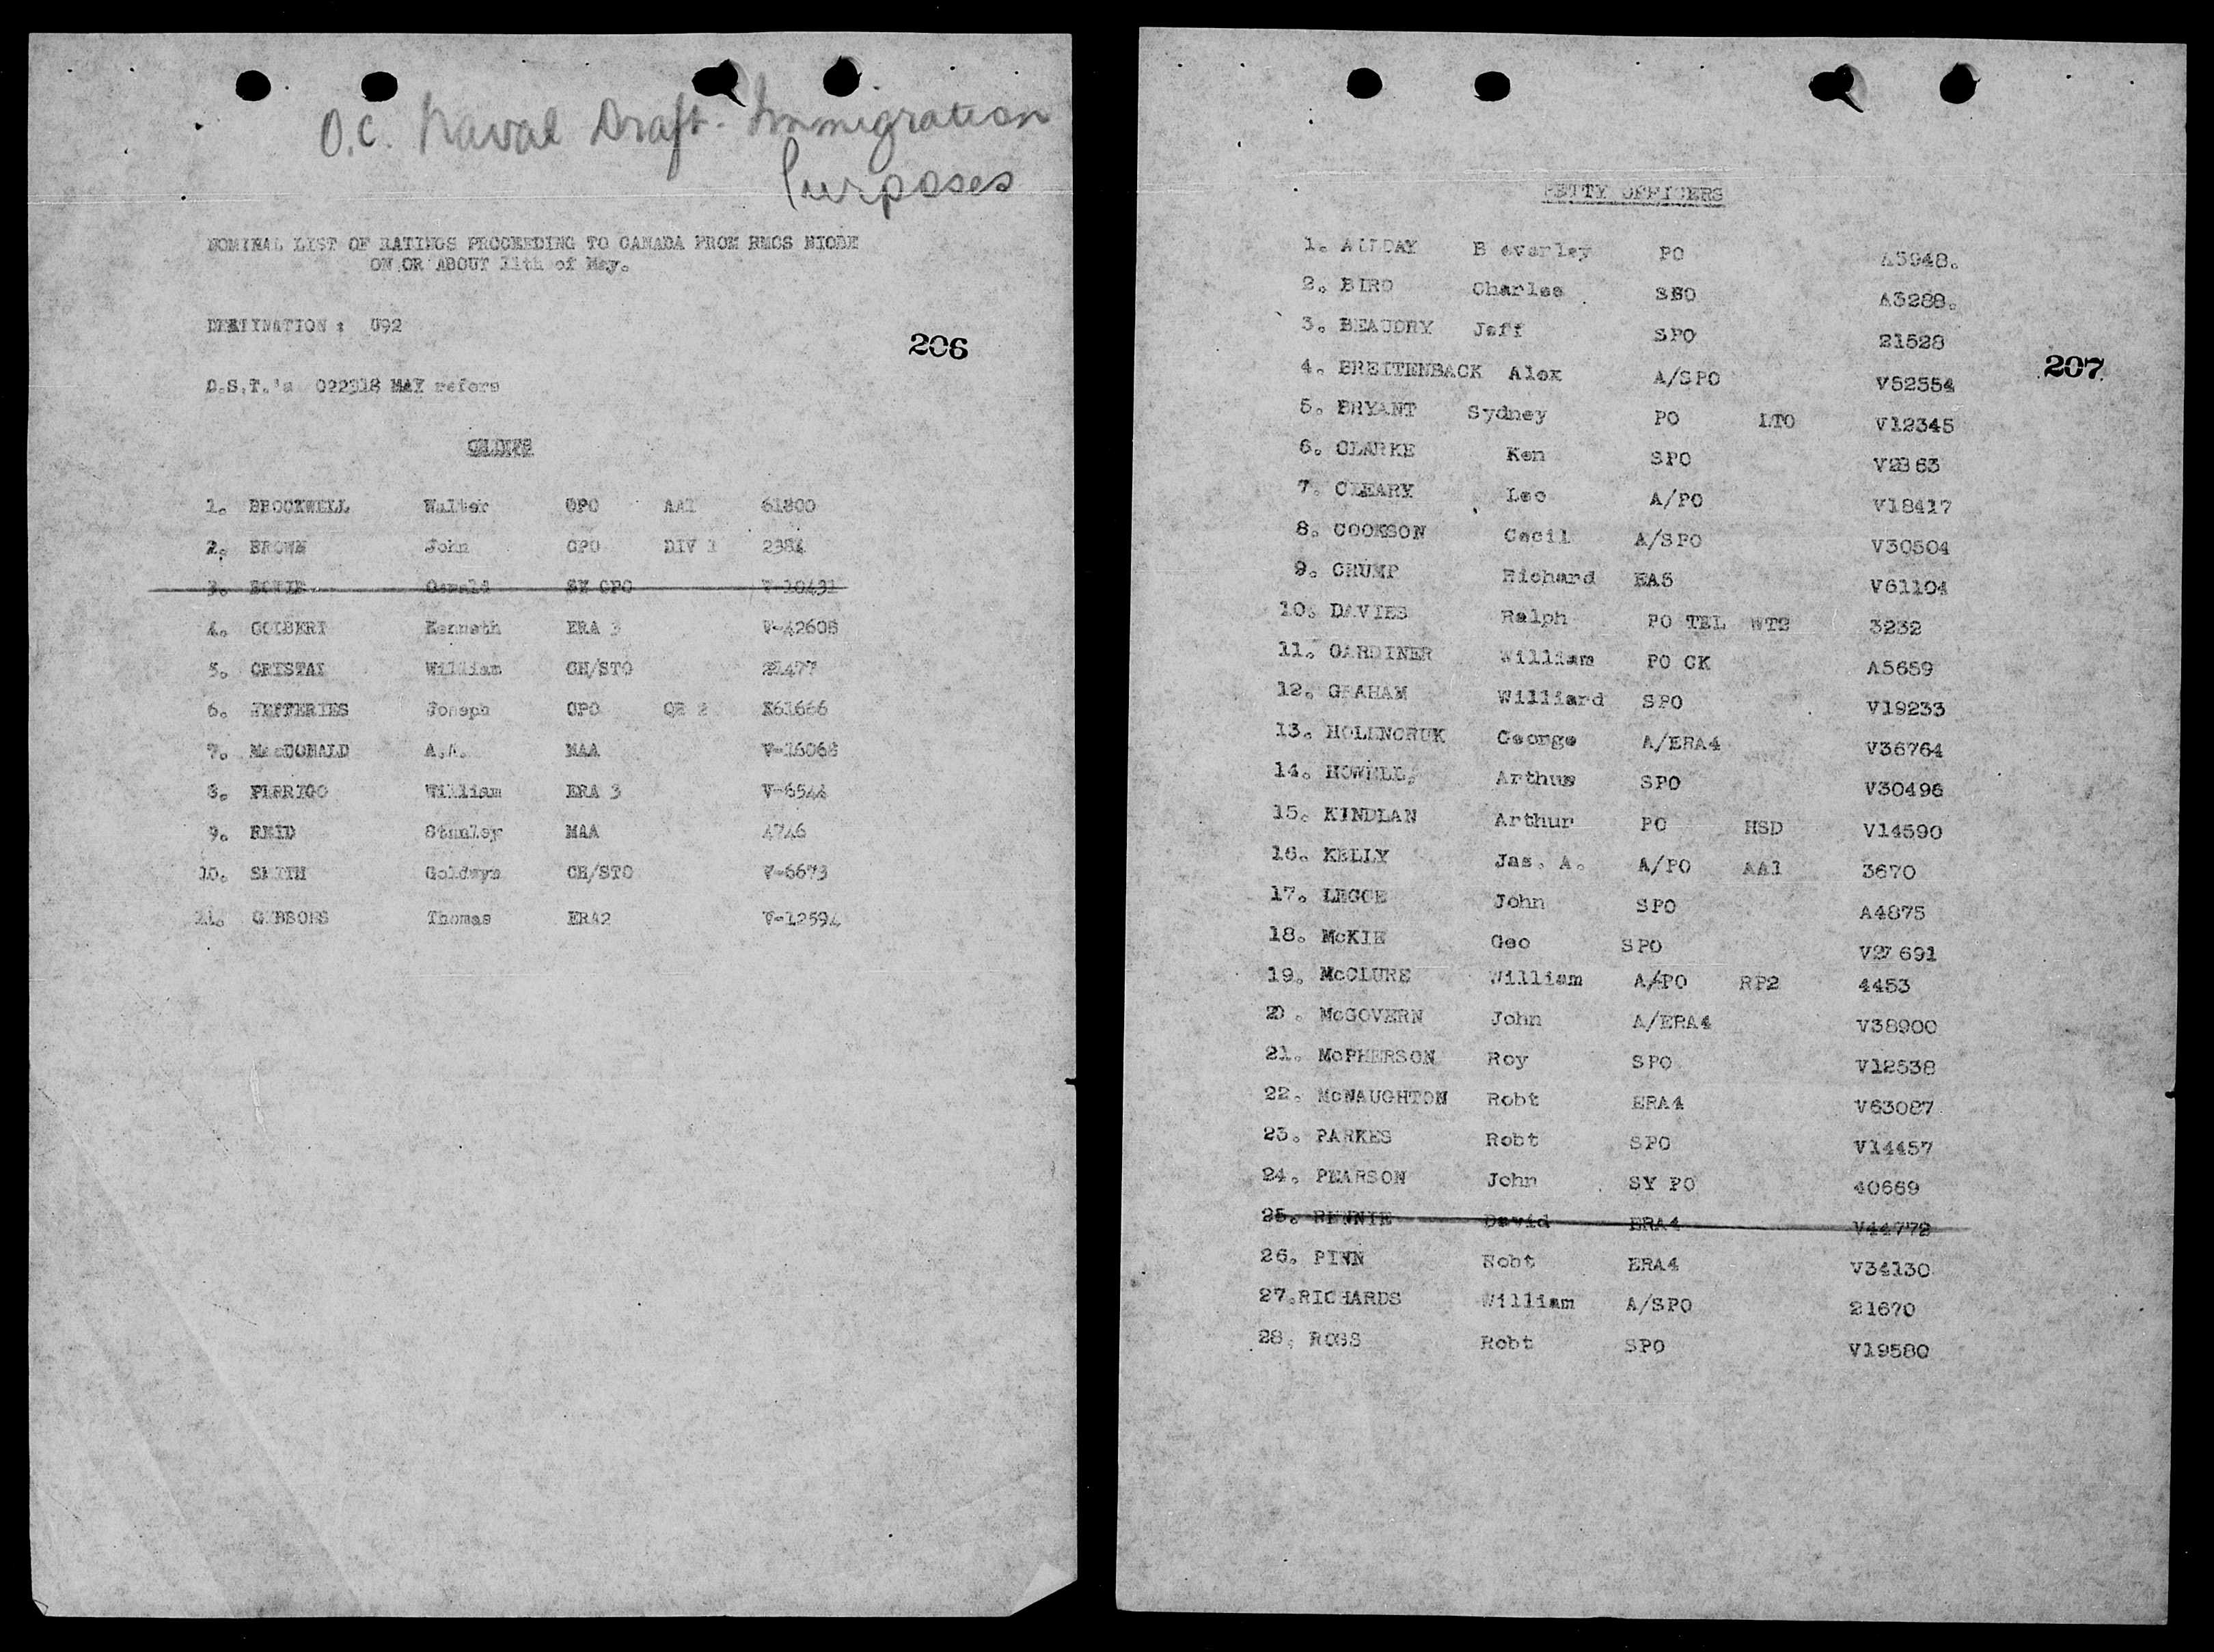 O.C. Naval Draft. Immigration
Purposes
NOMINAL LIST OF RATINGS PROCEEDING TO CANADA FROM HMCS NIOBE
ON OR ABOUT 11th of May.
DESTINATION : U92
206
D.S.T.'s 022318 MAY refers
CHIEFS
1. BROCKWELL Walter CPO AA1 61800
2. BROWN John CPO DIV 1 2384
3. Oswald SY CPO V-10431
4. COLBERT Kenneth ERA 3 V-42605
5. CRISTAL William CH/STO 21477
6. JEFFERIES Joseph CPO QR 2 X61666
7. MacDONALD A.A. MAA V-16068
8. PERRIGO William ERA 3 V-6544
9. REID Stanley MAA 4746
10. SMITH Goldwyn CH/STO V-6673
11. GIBBONS Thomas ERA2 V-12594
PETTY OFFICERS
1. ALLDAY B everley PO A5948.
2. BIRD Charles SPO A5288.
3. BEAUDRY Jeff SPO 21528
207
4. BREITENBACK Alex A/SPO V52554
5. BRYANT Sydney PO LTO V12345
6. CLARKE Ken SPO V2863
7. CLEARY Leo A/PO V18417
8. COOKSON Cecil A/SPO V30504
9. CRUMP Richard EA5 V61104
10. DAVIES Ralph PO TEL WT2 3232
11. GARDINER William PO CK A5659
12. GRAHAM Williard SPO V19233
13. HOLINCRUK George A/ERA4 V36764
14. HOWELL, Arthus SPO V30496
15. KINDLAN Arthur PO HSD V14590
16. KELLY Jas. A. A/PO AA1 3670
17. LEGGE John SPO A4875
18. McKIE Geo SPO V27 691
19. McCLURE William A/PO RP2 4453
20. McGOVERN John A/ERA4 V38900
21. McPHERSON Roy SPO V12538
22. McNAUGHTON Robt ERA4 V63087
23. PARKES Robt SPO V14457
24. PEARSON John SY PO 40669
25. RENNIE David ERA4 V44772
26. PINN Robt ERA4 V34130
27.RICHARDS William A/SPO 21670
28. ROSS Robt SPO V19580